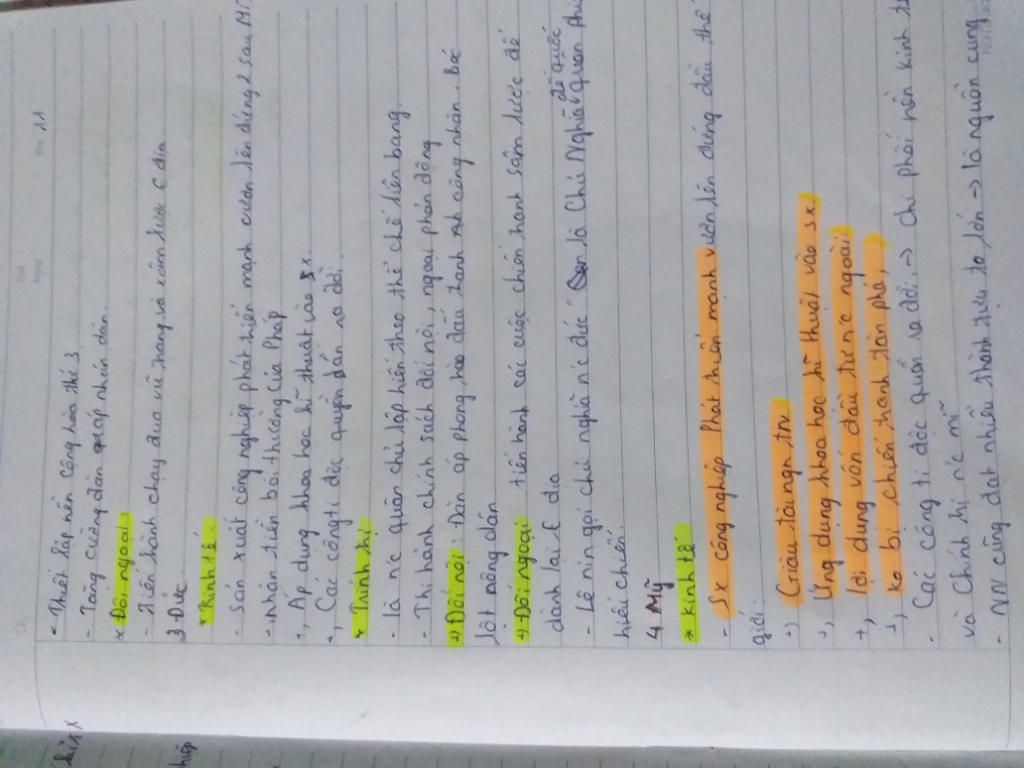 - Thiết lập nền cộng hòa thứ 3
- Tăng cường đàn áp nhân dân.
* Đối ngoại:
- Tiến hành chạy đua vũ trang và xâm lược t địa.
3 Đức.
* Kinh tế.
- Sản xuất công nghiệp phát triển mạnh vươn lên đứng 2 sau Mĩ
- Nhận tiền bồi thường của Pháp
+, Áp dụng khoa học kĩ thuật vào sx.
+, Các công ti độc quyền dần ra đời.
* Chính trị
- Là n'c quân chủ lập hiến theo thể chế liên bang.
- Thi hành chính sách đối nội, ngoại phản động
+) Đối nội: Đàn áp phong trào đấu tranh công nhân. Bóc
lột nông dân
+) Đối ngoại tiến hành các cuộc chiến tranh xâm lược để
dành lại t địa
đế quốc
- Lê nin gọi chủ nghĩa n'c đức" là Chủ Nghĩa quân phiệt
hiếu chiến.
4 Mỹ
* Kinh tế
- Sx công nghiệp Phát triển mạnh vươn lên đứng đầu thế
giới.
+) Giàu tài ngn tn
+, Ứng dụng khoa học kĩ thuật vào sx
+, lợi dụng vốn đầu tư n'c ngoài
+, ko bị chiến tranh tàn phá,
- Các công ti độc quyền ra đời. -> chi phối nền kinh tế
và Chính trị n'c mĩ
- NN cũng đạt nhiều thành tựu to lớn -> là nguồn cung